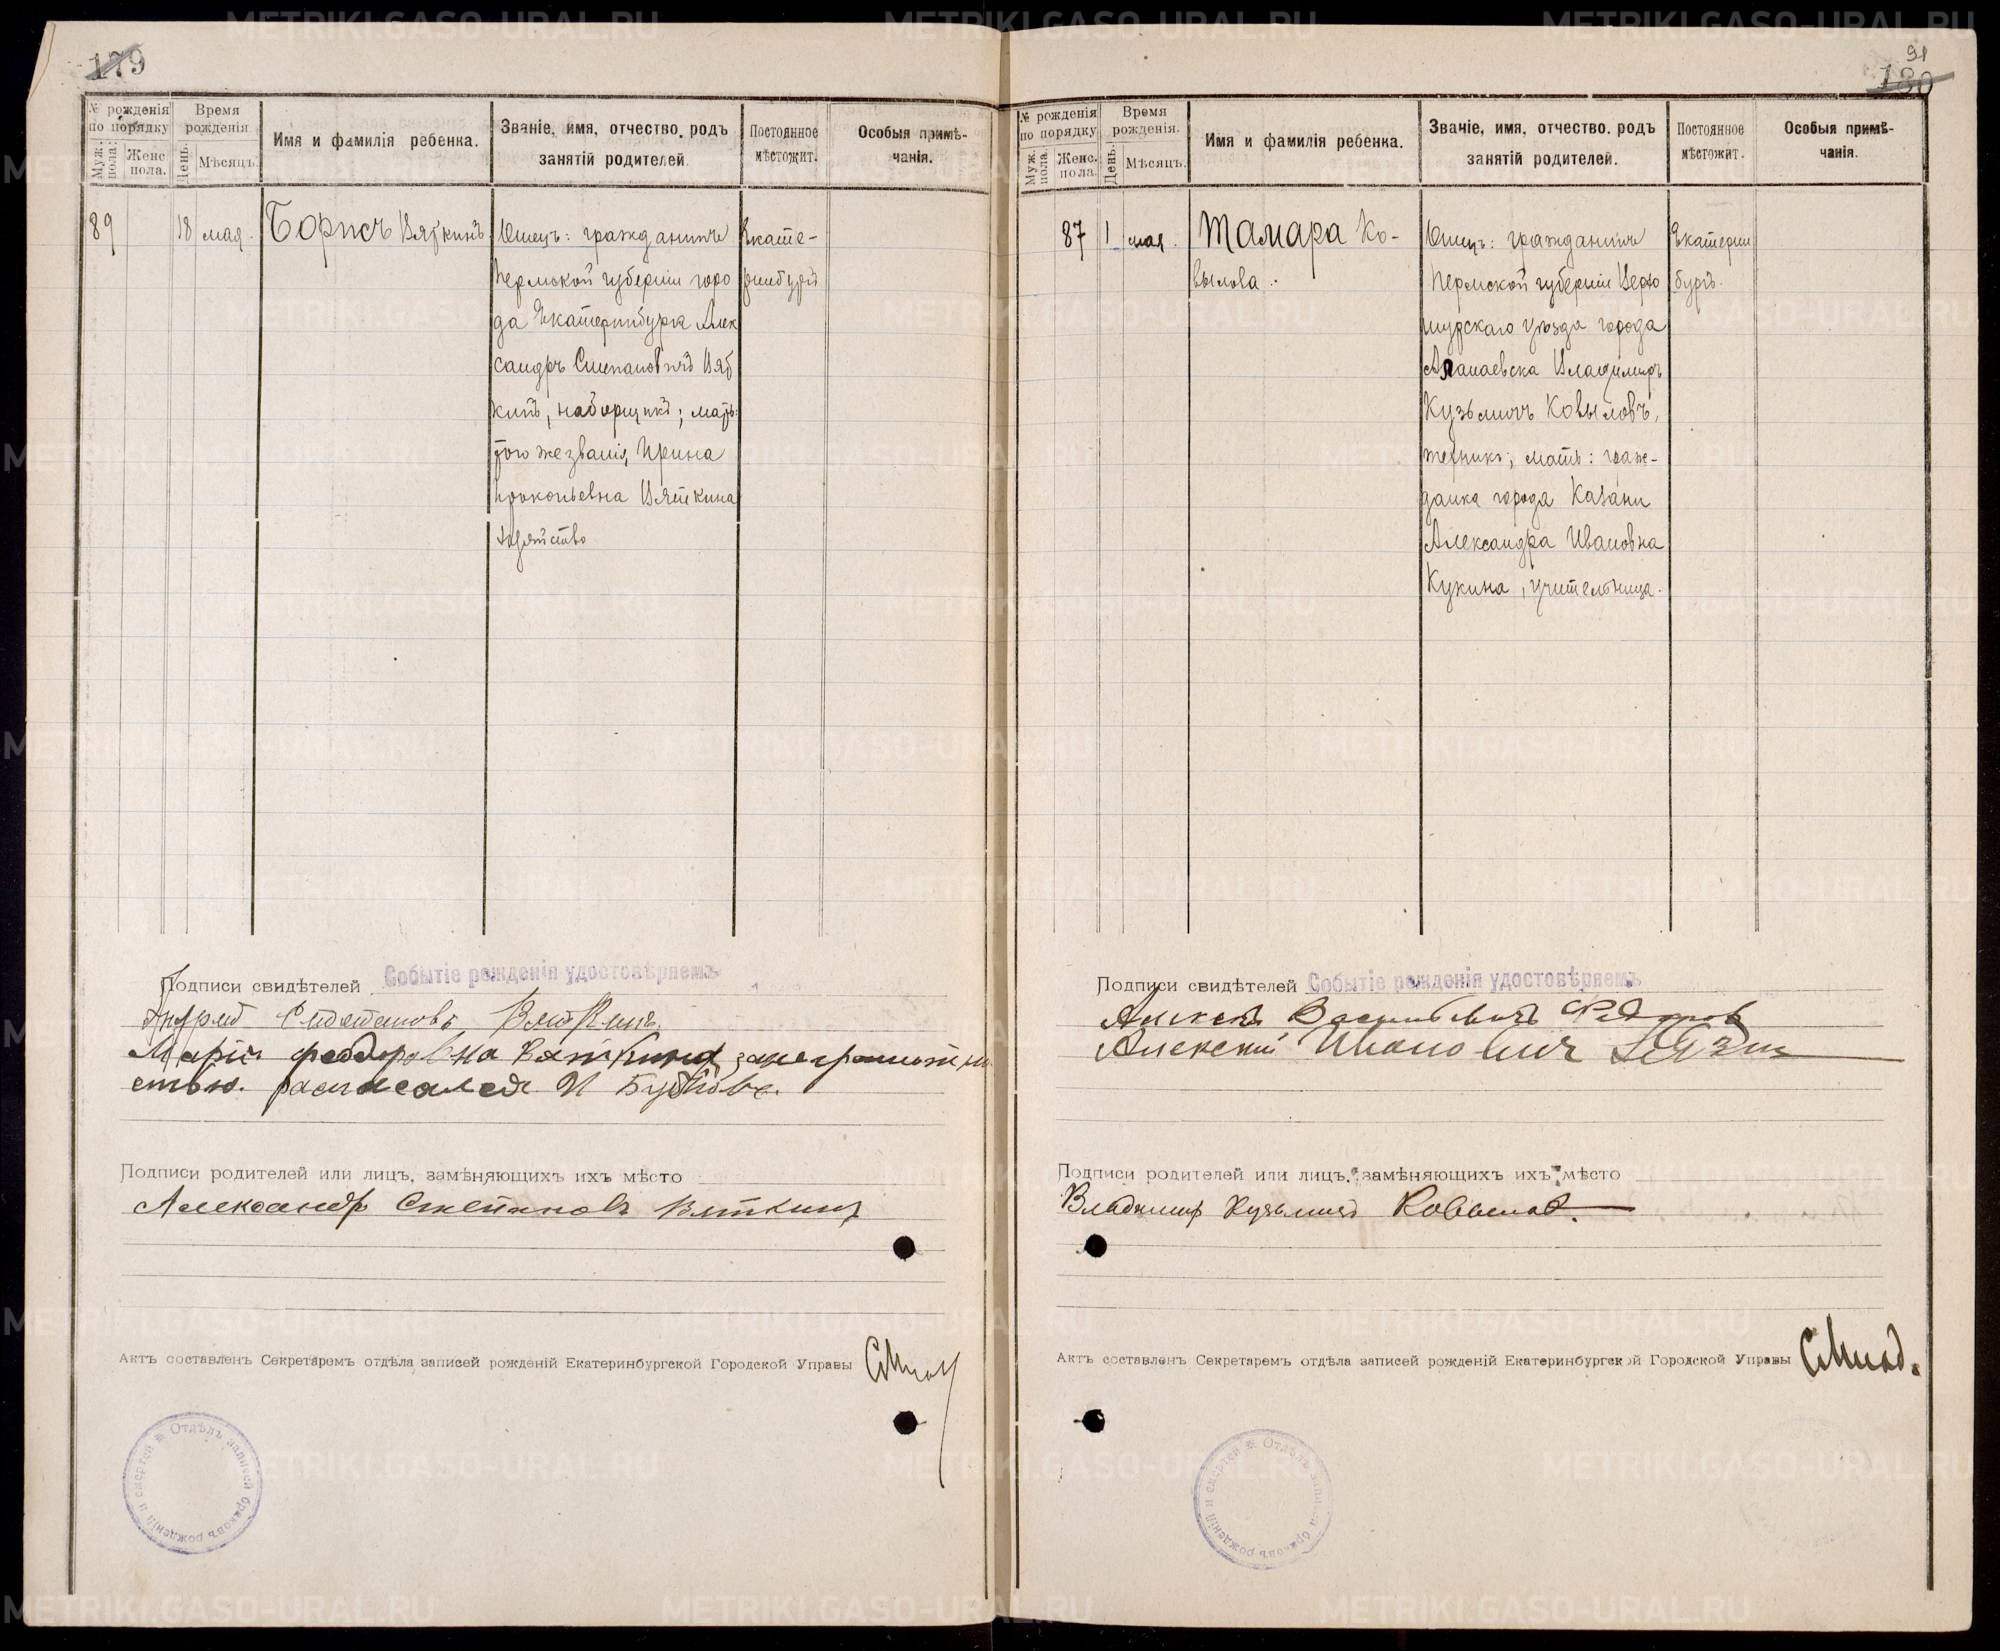 179
№ рожденія по порядку
Муж. пола.
Женс. пола.
Время рожденія
День.
Мѣсяцъ.
Имя и фамилія ребенка.
Званіе, имя, отчество, родъ
занятій родителей.
Постоянное
мѣстожит.
Особыя примѣ-
чанія.
89
18
мая.
Борисъ Вяткинъ
Отецъ: гражданинъ
Пермской губерніи горо
да Екатеринбурга Алек
сандръ Степановичъ Вят
кинъ, наборщикъ; мать:
того же званія, Ирина
Прокопьевна Вяткина
Екате-
ринбургъ
Подписи свидѣтелей
Событіе рожденія удостовѣряемъ
Андрей Степановъ Вяткинъ
Марія Феодоровна Вяткина, за неграмотно
стью. расписался И
Подписи родителей или лицъ, замѣняющихъ ихъ мѣсто
Александр Степановъ Вяткинъ
Актъ составленъ Секретаремъ отдѣла записей рожденій Екатеринбургской Городской Управы
Отдѣлъ записей браковъ рожденій и смертей
91
180
№ рожденія
по порядку
Муж. пола.
Женс. пола.
Время
рожденія.
День.
Мѣсяцъ.
Имя и фамилія ребенка.
Званіе, имя, отчество, родъ
занятій родителей.
Постоянное
мѣстожит.
Особыя примѣ-
чанія.
87
1
мая.
Тамара Ко-
вылова.
Отецъ: гражданинъ
Пермской губерніи Верхо
турскаго уѣзда города
Алапаевска Владимиръ
Кузьмичъ Ковыловъ,
техникъ; мать: граж-
данка города Казани
Александра Ивановна
Кукина, учительница.
Екатерин
бургъ.
Подписи свидѣтелей
Событіе рожденія удостовѣряемъ
Алексѣй Васильевичъ Федоров
Алексей Иванович
Подписи родителей или лицъ, замѣняющихъ ихъ мѣсто
Владимир Кузьмичъ Ковылов.
Актъ составленъ Секретаремъ отдѣла записей рожденій Екатеринбургской Городской Управы
Отдѣлъ записей браковъ рожденій и смертей
METRIKI.GASO-URAL.RU